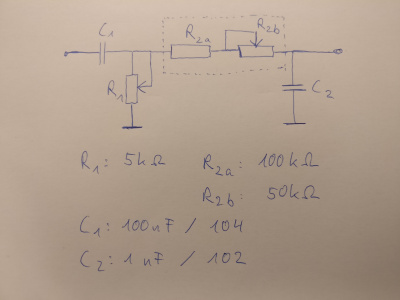 C1
R2a
R2b
R1
C2
R1: 5kΩ
R2a: 100kΩ
R2b: 50kΩ
C1: 100nF / 104
C2: 1nF / 102